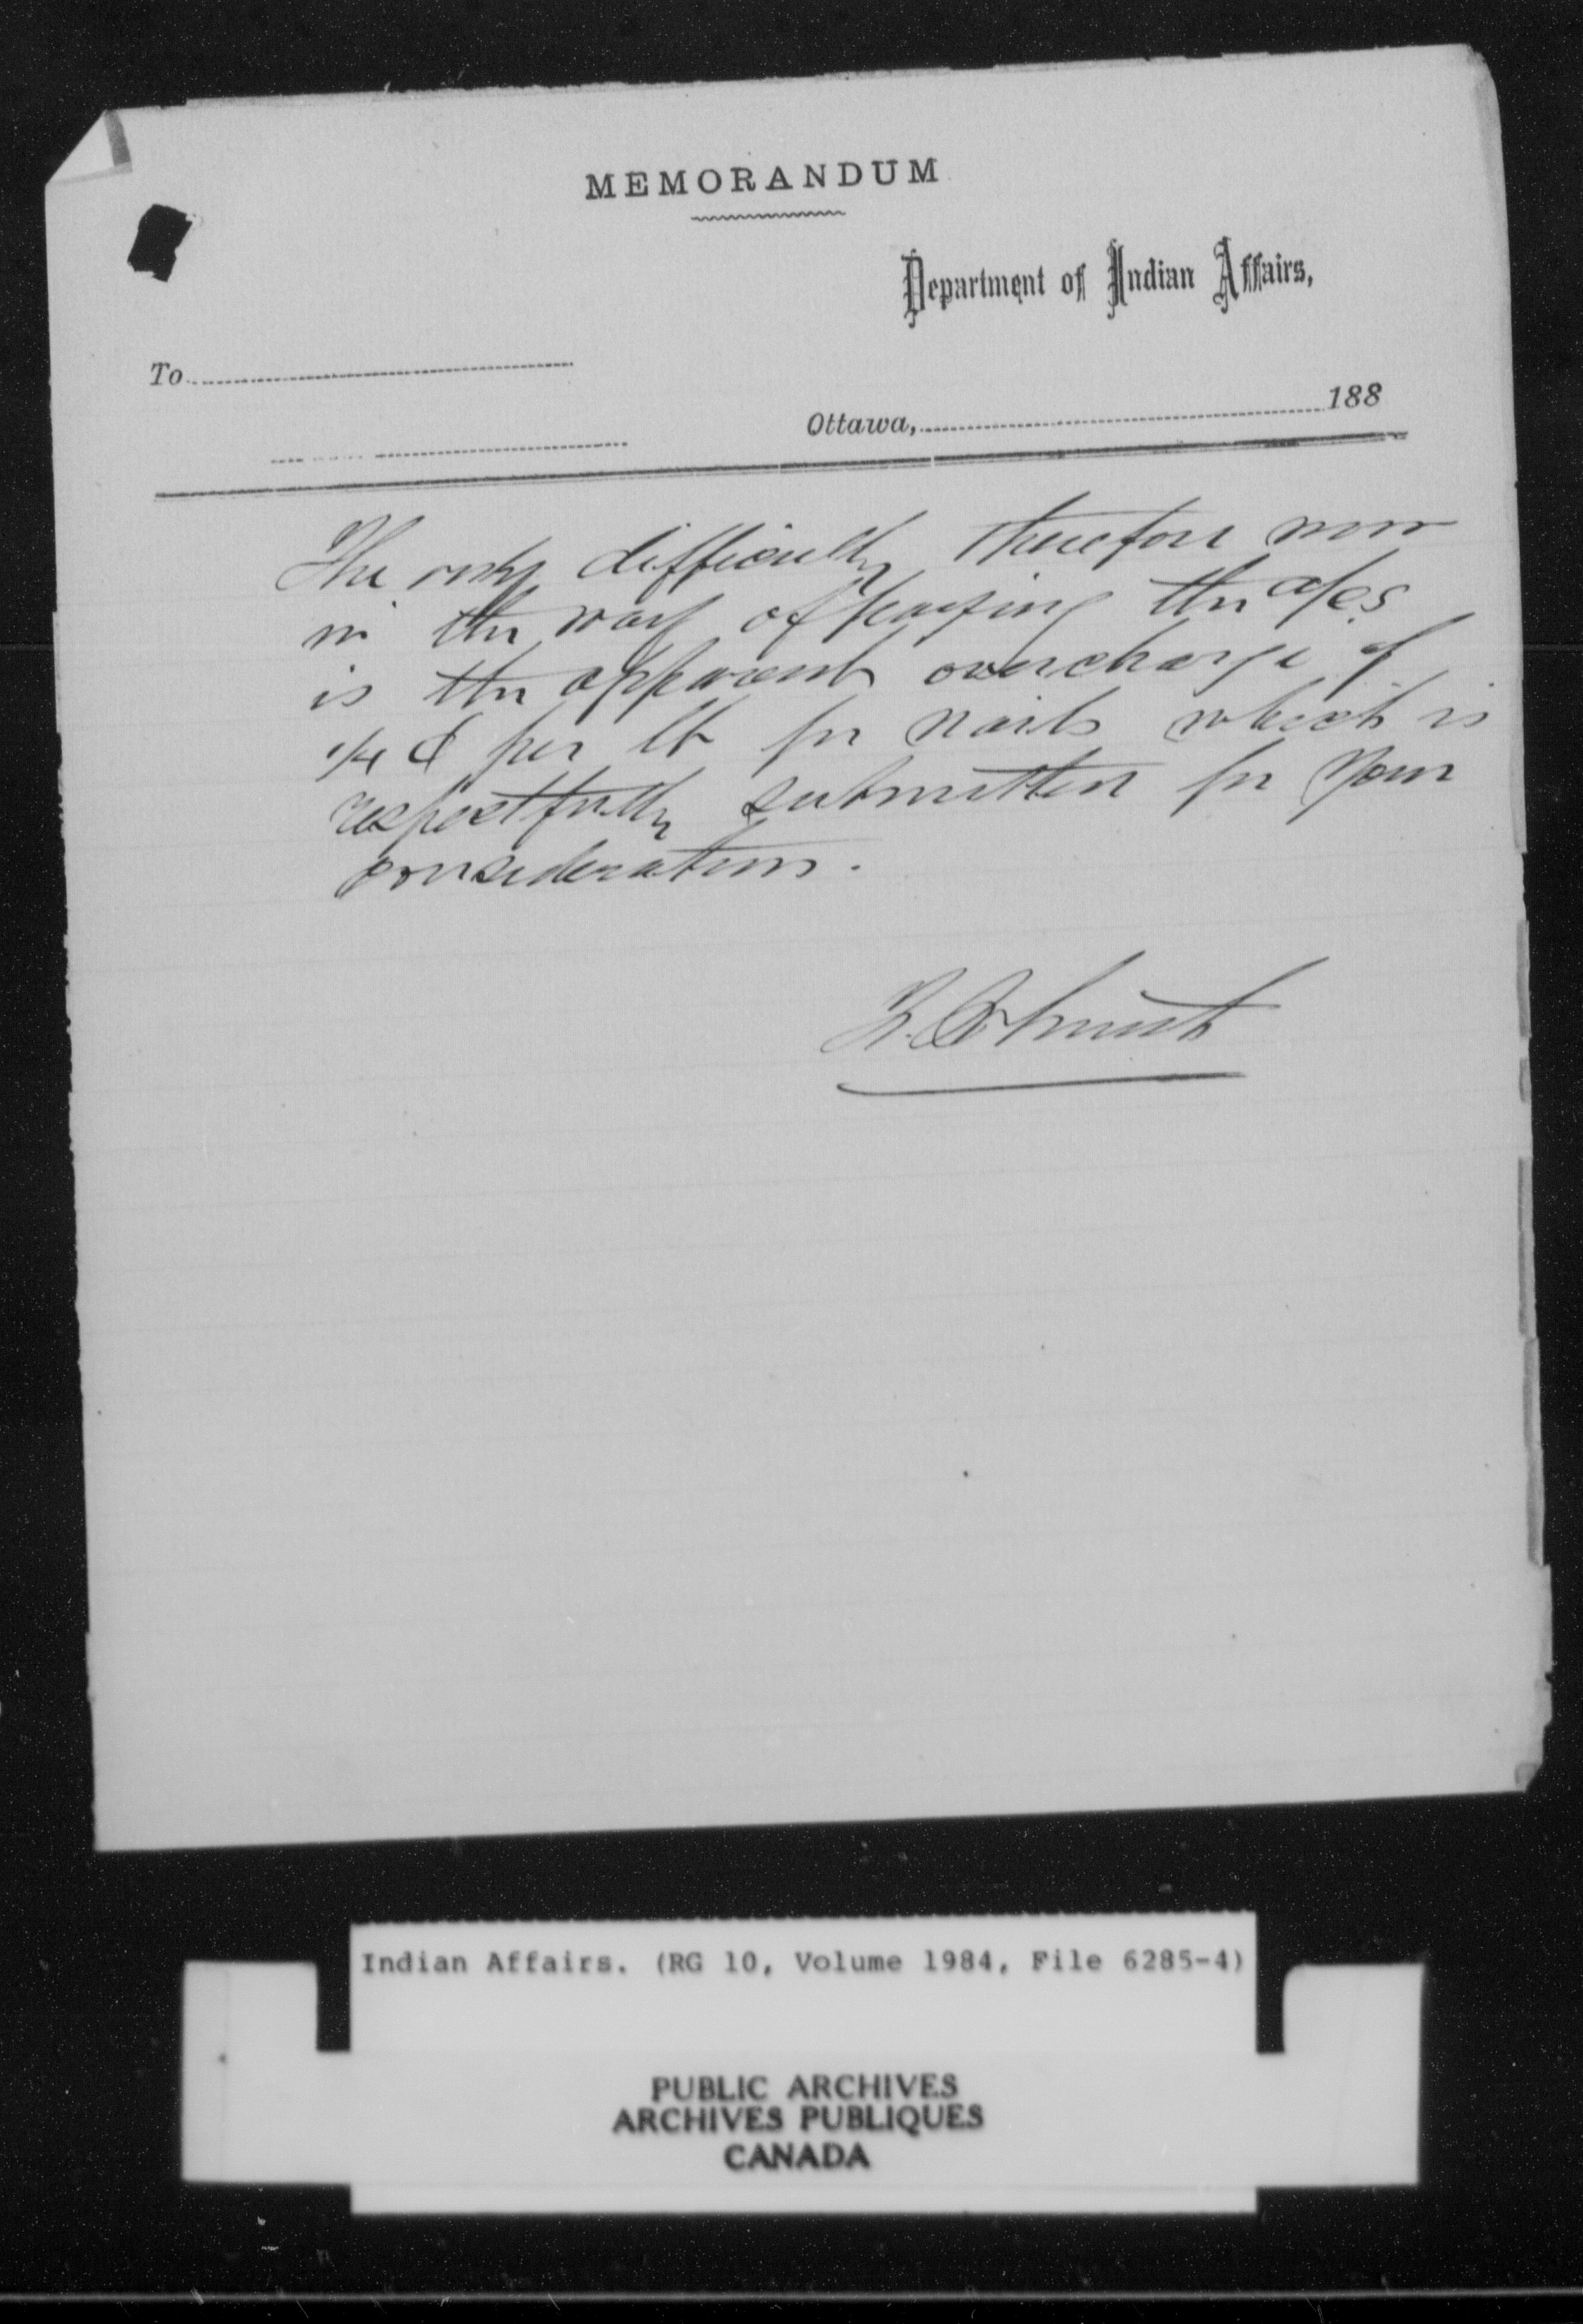 MEMORANDUM
Department of Indian Affairs,
To
Ottawa, 188
The only difficulty therefore now
in the way of paying the a/cs
is the apparent overcharge of
1/4 ¢ per lb for nails which is
respectfully submitted for your
consideration.
Indian Affairs. (RG 10, Volume 1984, File 6285-4)
PUBLIC ARCHIVES
ARCHIVES PUBLIQUES
CANADA